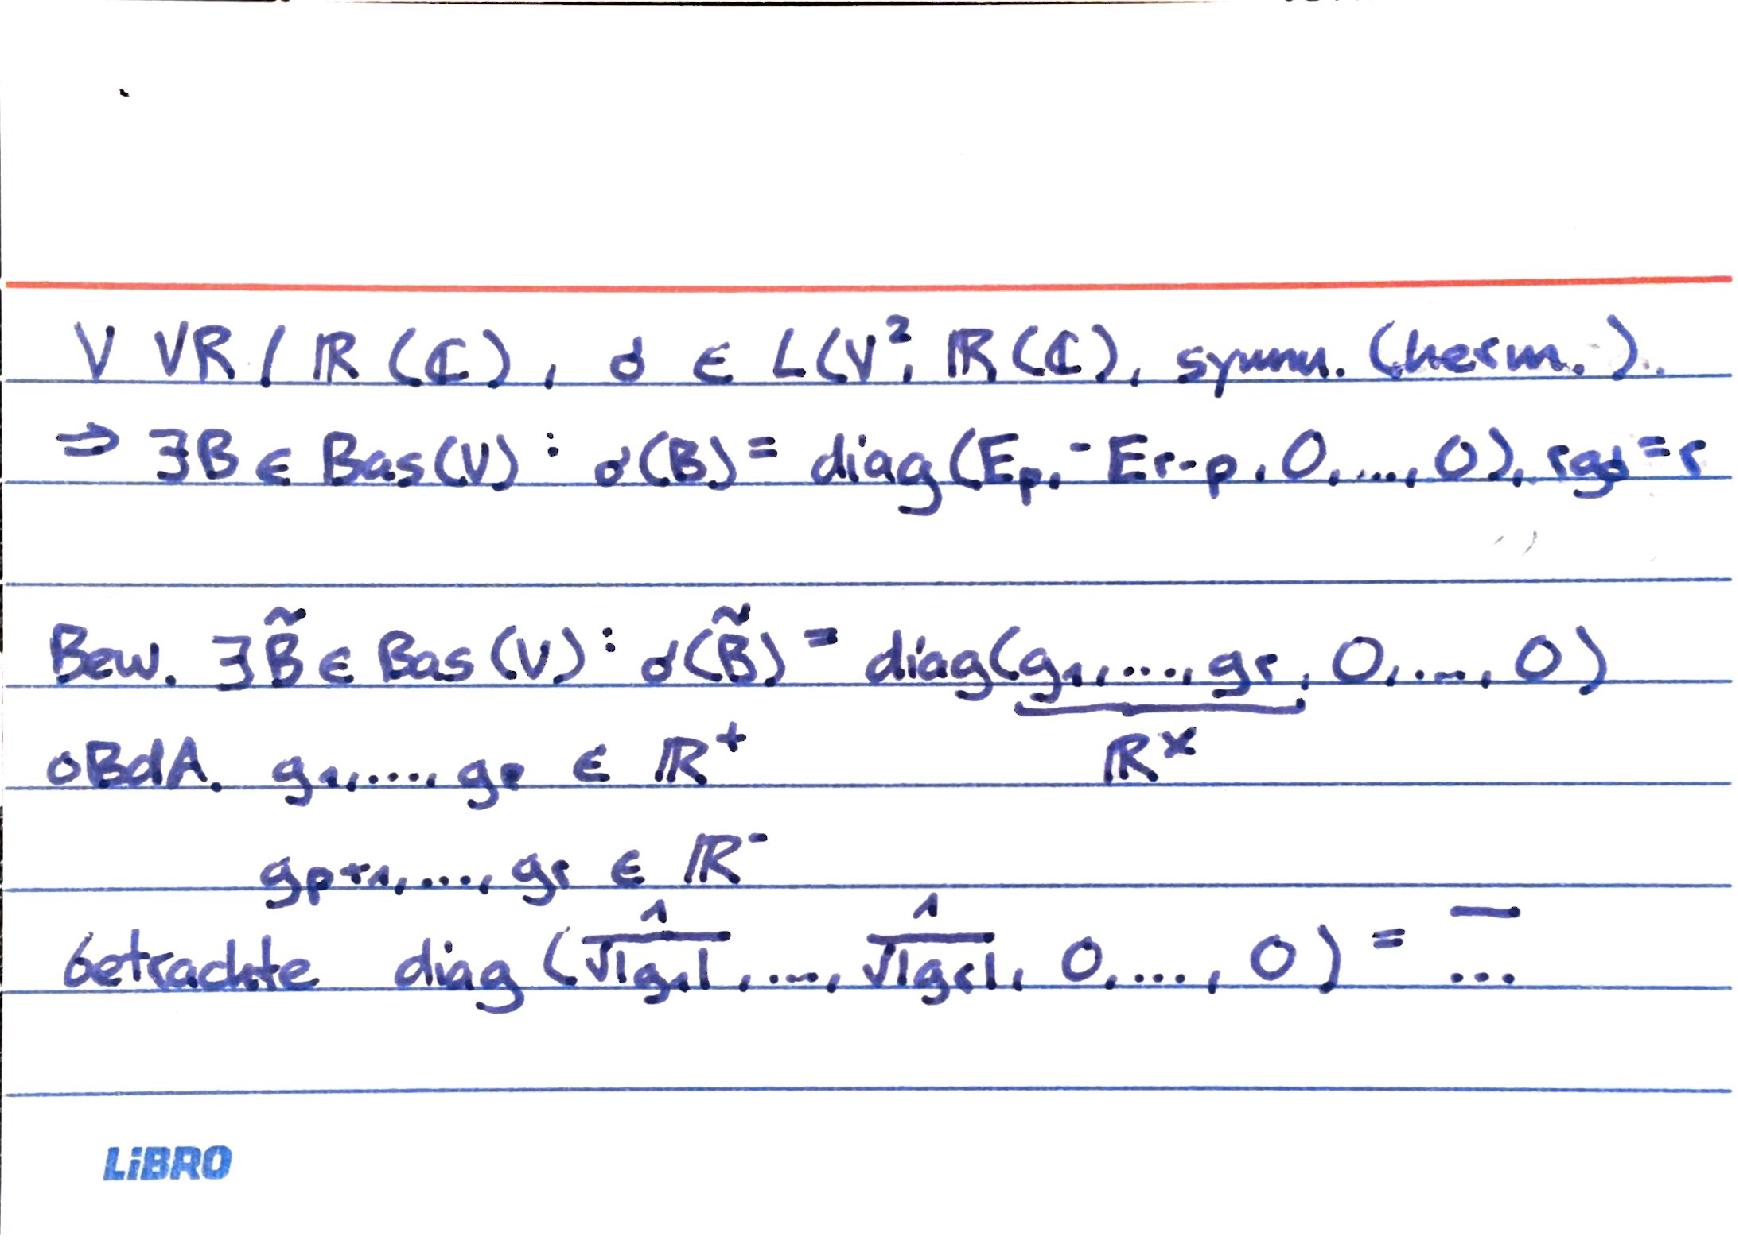 V VR / ℝ (ℂ), σ ∈ L(V², ℝ(ℂ), symm. (herm.).
⇒ ∃B ∈ Bas(V): σ(B) = diag(E_p, -E_{r-p}, 0, ..., 0), rgσ = r
Bew. ∃B̃ ∈ Bas(V): σ(B̃) = diag(g₁, ..., g_r, 0, ..., 0)
oBdA. g₁, ..., g_p ∈ ℝ⁺ ℝ^×
g_{p+1}, ..., g_r ∈ ℝ⁻
betrachte diag(1/√|g₁|, ..., 1/√|g_r|, 0, ..., 0) = ‾...
LiBRO